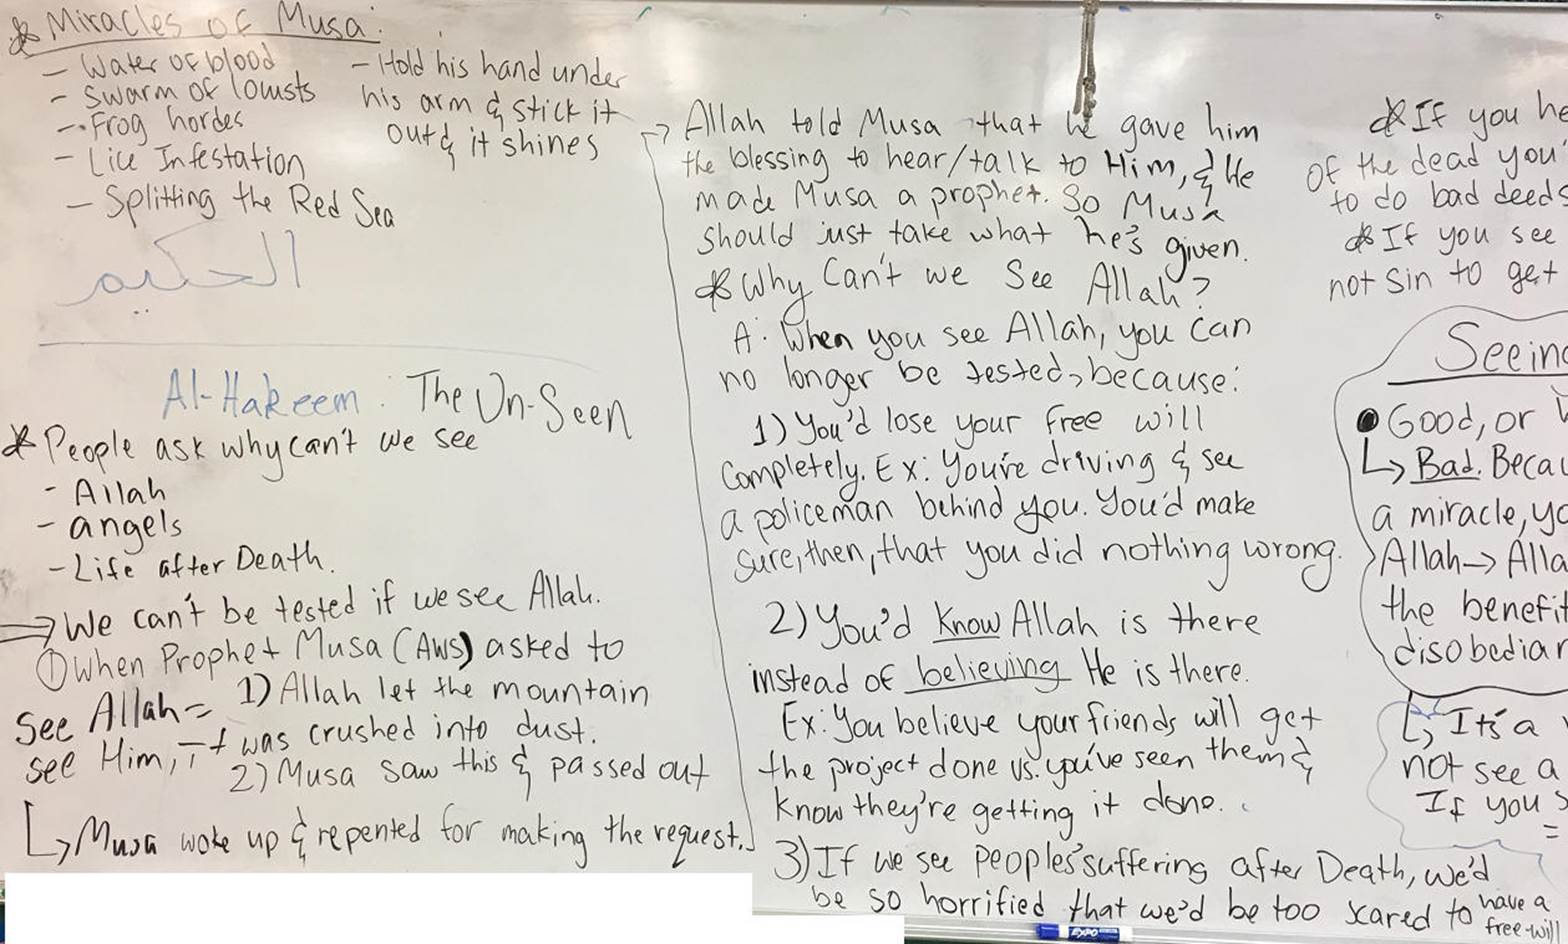 * Miracles of Musa:
- Water of blood
- Swarm of lowsts
- Frog hordes
- Lice Infestation
- Splitting the Red Sea
- Hold his hand under
his arm & stick it
out & it shines
الحكيم
Al-Hakeem: The Un-Seen
* People ask why can't we see
- Allah
- angels
- Life after Death.
⇒ We can't be tested if we see Allah.
① When Prophet Musa (AWS) asked to
see Allah = 1) Allah let the mountain
see Him, it was crushed into dust.
2) Musa saw this & passed out
↳ Musa woke up & repented for making the request.
→ Allah told Musa that he gave him
the blessing to hear/talk to Him, & He
made Musa a prophet. So Musa
should just take what he's given.
* Why Can't we See Allah?
A: When you see Allah, you can
no longer be tested, because:
1) You'd lose your free will
completely. Ex: You're driving & see
a policeman behind you. You'd make
sure, then, that you did nothing wrong.
2) You'd know Allah is there
instead of believing He is there.
Ex: You believe your friends will get
the project done vs. you've seen them &
know they're getting it done.
3) If we see peoples' suffering after Death, we'd
be so horrified that we'd be too scared to have a
free-will
* If you he
of the dead you'
to do bad deeds
* If you see
not sin to get
Seeing
● Good, or
↳ Bad. Becau
a miracle, yo
Allah → Alla
the benefit
disobedian
↳ It's a
not see a
If you s
=
EXPO